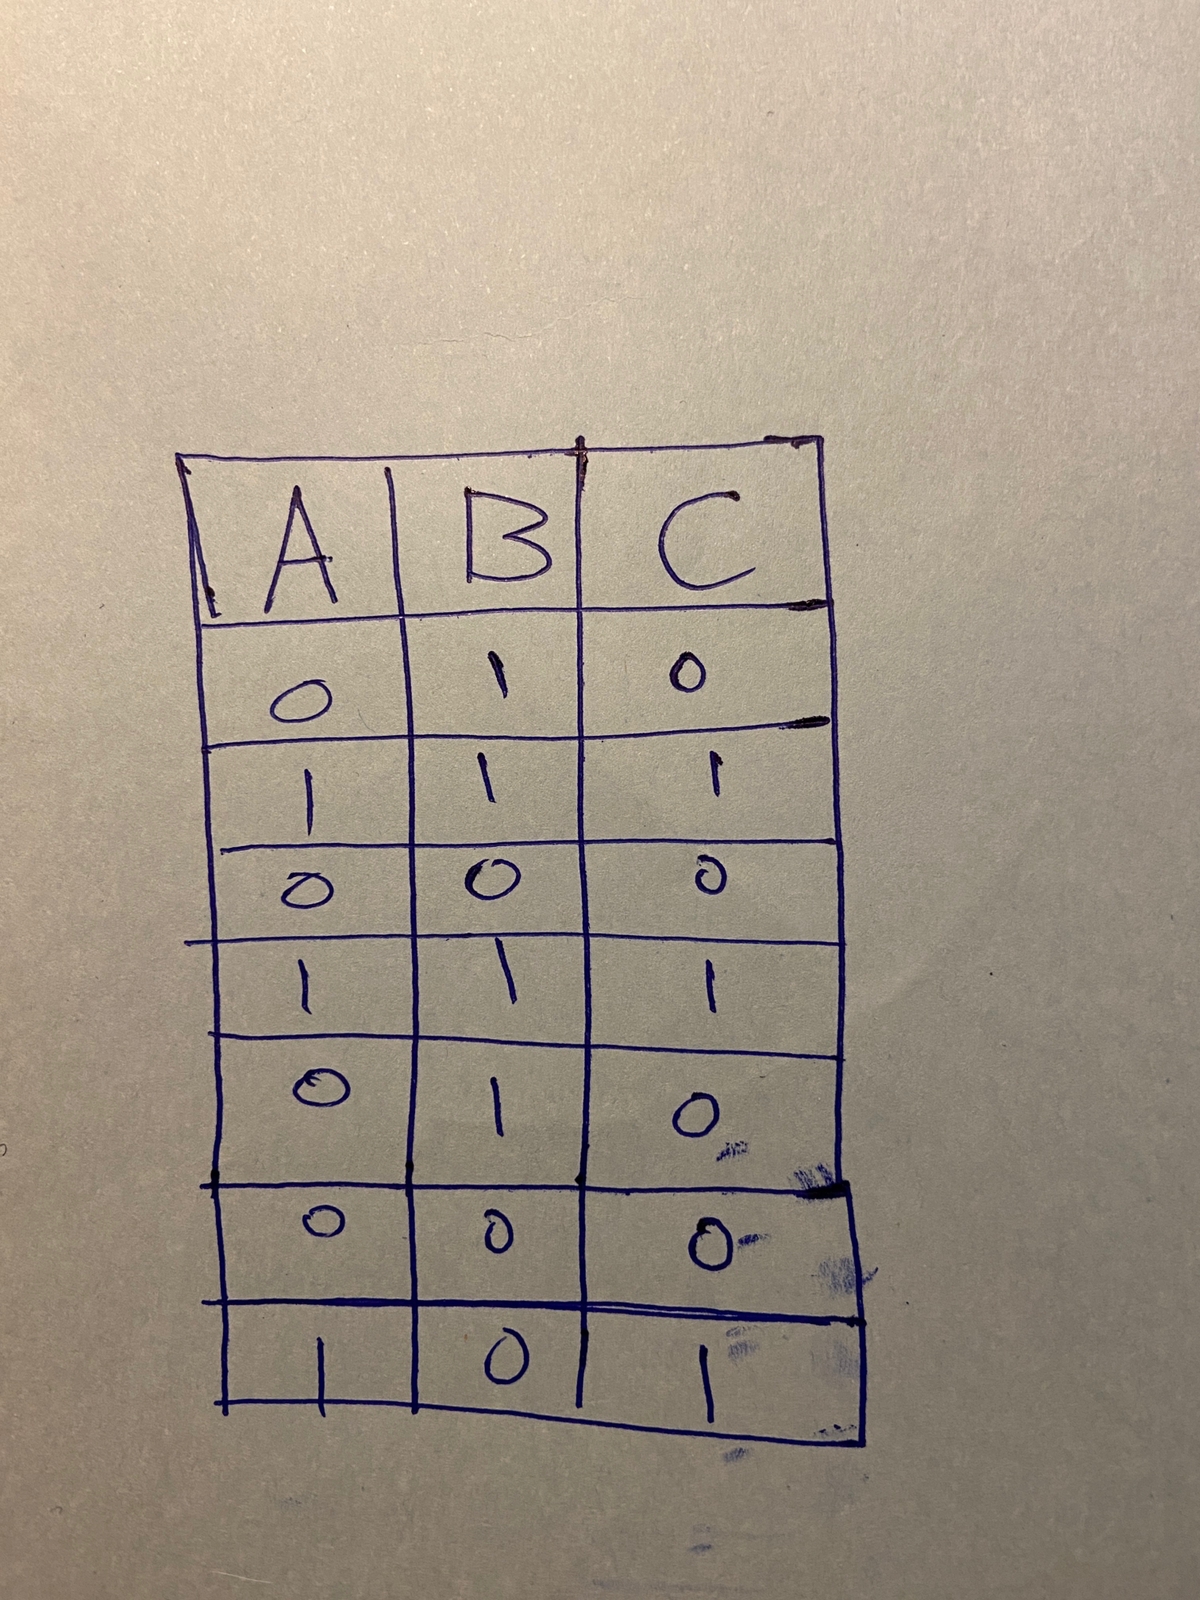 A B C
0 1 0
1 1 1
0 0 0
1 1 1
0 1 0
0 0 0
1 0 1